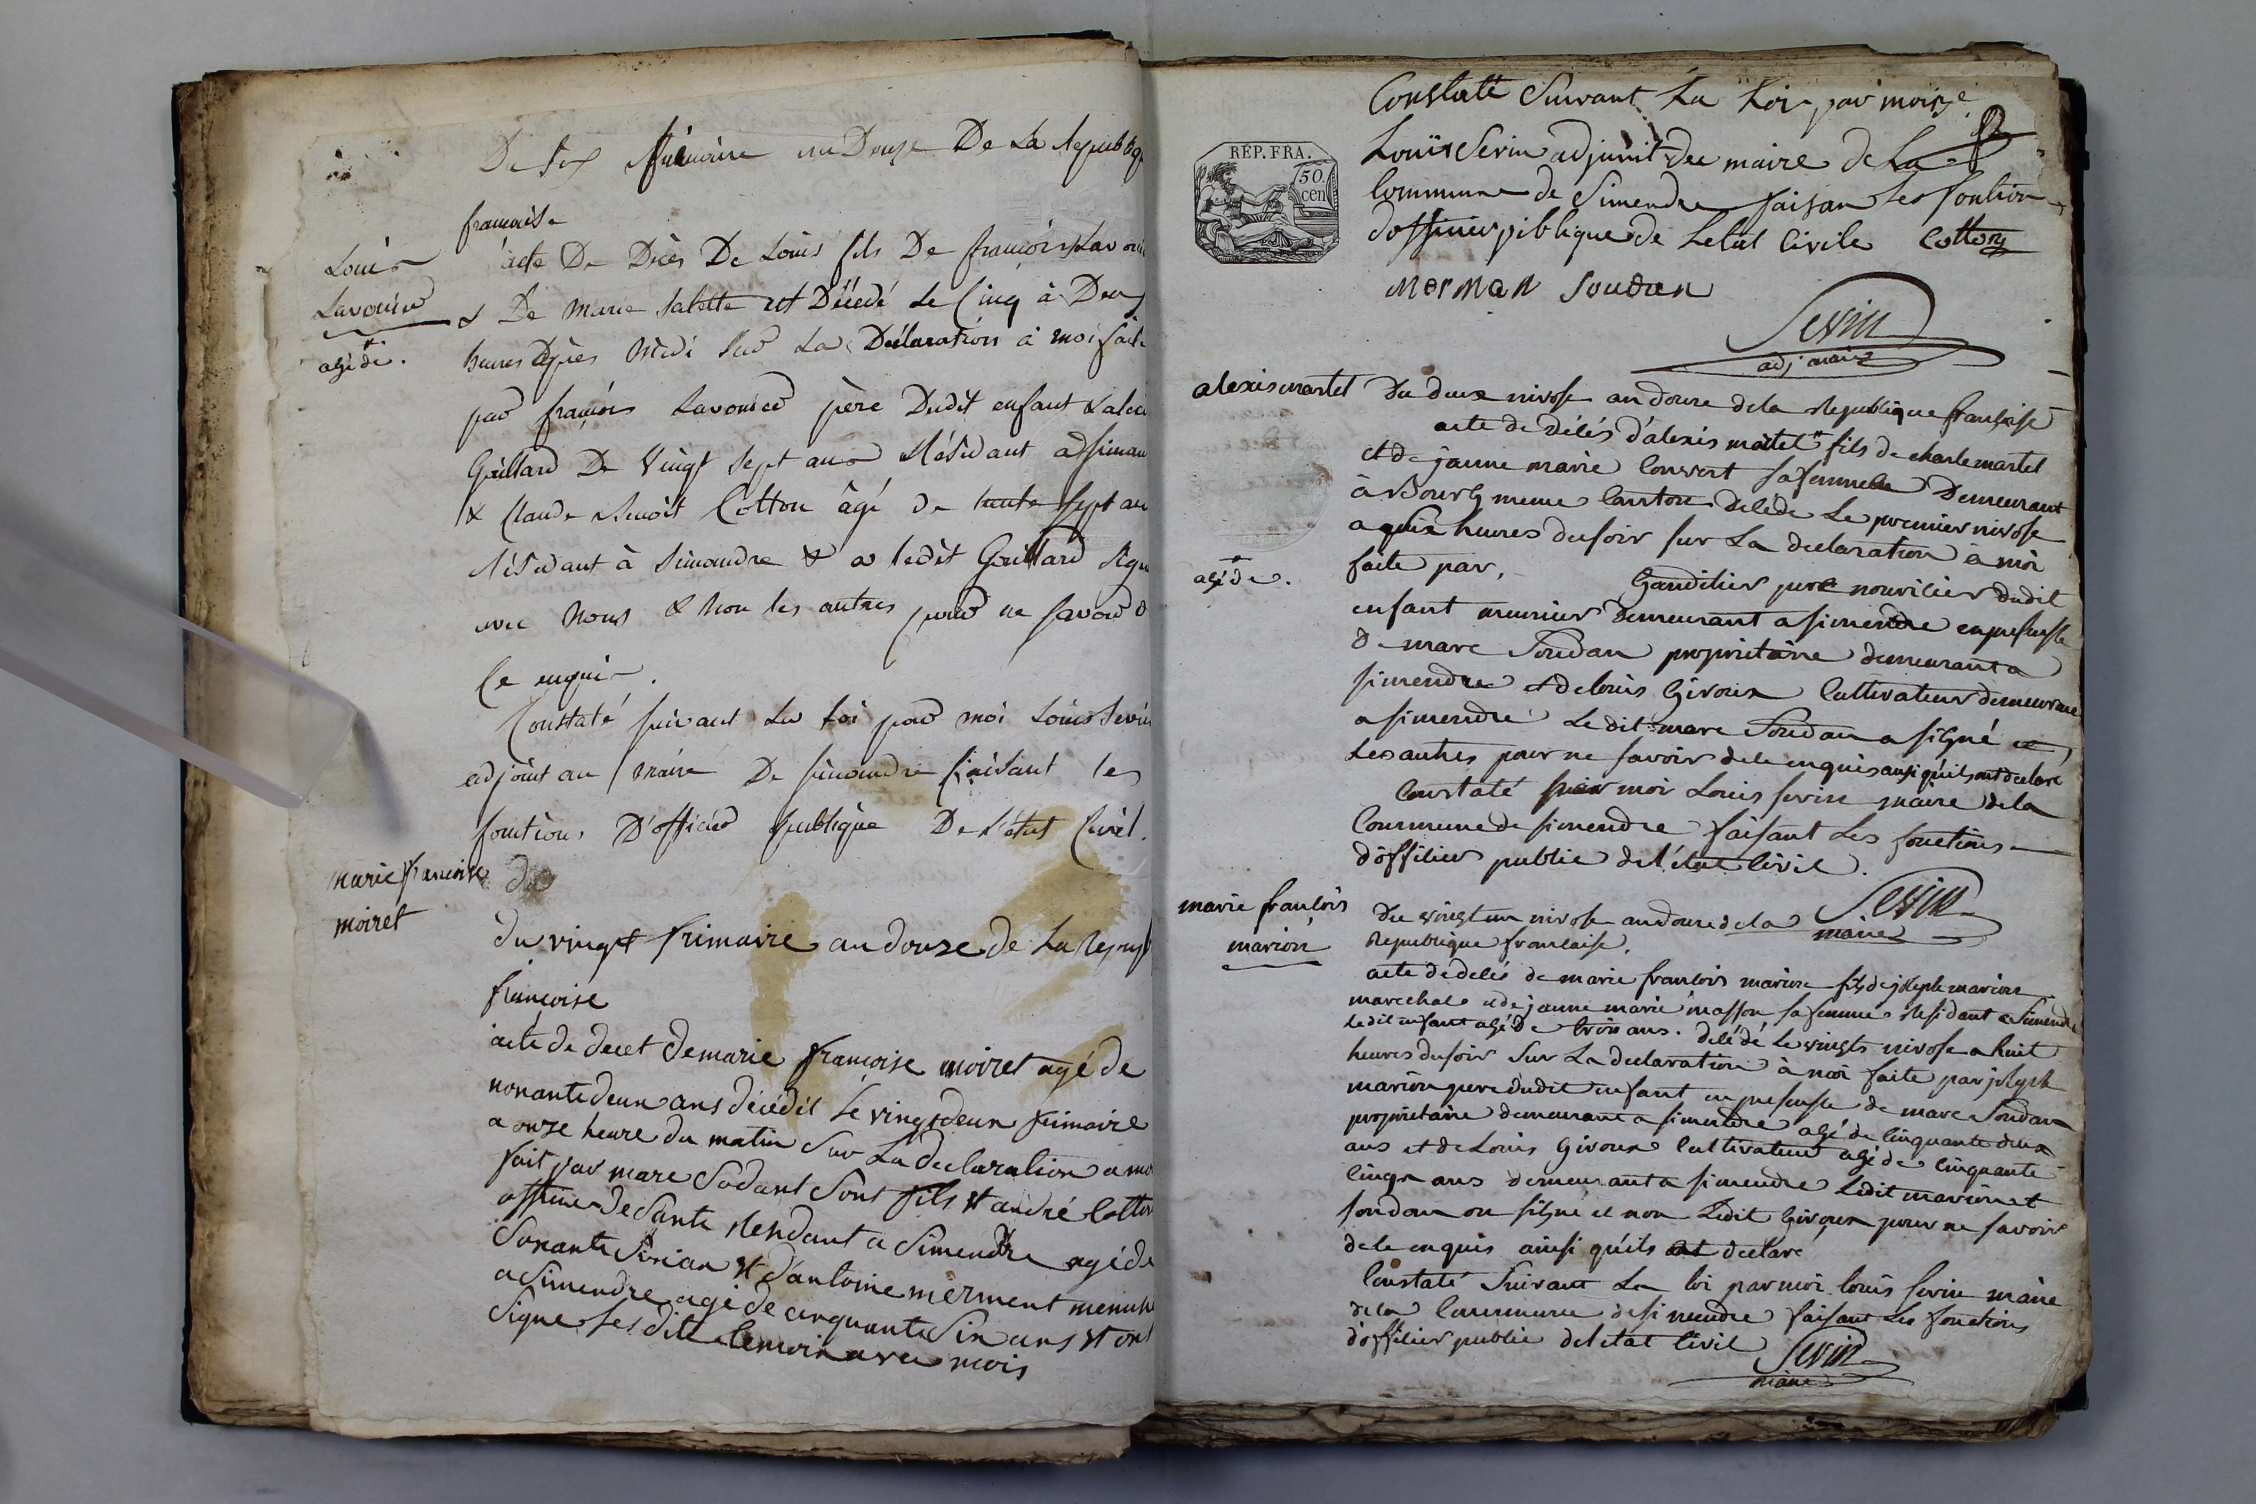 De six frimaire an Douze De La Republiq
francoise
Louis
Lavouied
agé de.
acte De Dècès De Louis fils De françois Lavoui
& De Marie Salette est Décedé Le Cinq à Deux
heures Dèprès Midi Sur La Déclaration à moi faite
par françois Lavouied père Dudit enfant &
Guillard De Vingt Sept ans Résidant à Simand
& Claude Benoit Cotton âgé De trente Sept ans
Résidant à Simandre & a ledit Guillard Signé
avec Nous & Non les autres pour ne Savoir d
Ce enquis.
Constaté suivant La Loi par moi Louis Sevin
adjoint au Maire De Simandre faisant les
fonctions D'officier publique De L'état Civil.
marie francoise
moiret
du
du vingt frimaire an douze de La Repub
francoise
acte de decet de marie francoise moiret agé de
nonante deux ans décédét Le vingt deux frimaire
a onze heure du matin Sur La declaration a moi
fait par marc Sodant Sont fils et andré Cotton
officier de Santé Rendant a Simendre agé de
Soxante Sin an et d'antoine merment menui
a Simendre agé de cinquante Sin ans et ont
Signe Les dite temoin avec mois
Constaté Suivant La Loi par mois
REP. FRA.
50
cen
Louis Sevin adjunt du maire de La
Commune de Simendre faisan les fontion
dofficier piblique de Letat Civile Cotton
merman Soudan
Sevin
adj maire
alexis martel
Du deux nivose an douze de la Republique françaisse
acte de décés d'alexis martel fils de charle martel
et de jeanne marie Convert sa femme Demeurant
à Bourg meme Canton décédé Le premier nivose
a six heures du soir sur La declaration a moi
agé de.
faite par, Gandilier pere nouricier dudit
enfant meunier demeurant a simendre en presense
de marc Soudan proprietaire demeurant a
simendre et de louis Giroux Cultivateur demeurant
a simendre Le dit marc Soudan a signé et
Les autres pour ne savoir de le enquis ainsi qu'ils ont declaré
Constaté par moi Louis Sevin maire de la
Commune de simendre faisant Les fonctions
d'officier public de l'état Civil.
Sevin
maire
marie francois
marion
Du vingt un nivose an douze de la
Republique francaise.
acte de décés de marie francois marion fils de joseph marion
marechal et de jeanne marie masson sa femme Residant a Simendre
Le dit enfant agé de trois ans. décédé Le vingts nivose a huit
heures du soir Sur La declaration à moi faite par joseph
marion pere dudit enfant en presense de marc Soudan
proprietaire demeurant a simendre agé de Cinquante deux
ans et de Louis Giroux Cultivateur agé de Cinquante
Cinq ans demeurant a simendre Ledit marion et
soudan on signe et non Ledit Giroux pour ne savoir
de le enquis ainsi qu'ils ont declaré
Constaté Suivant La loi par moi louis Sevin maire
de la Commune de simendre faisant Les fonctions
d'officier public de l'etat Civil
Sevin
maire